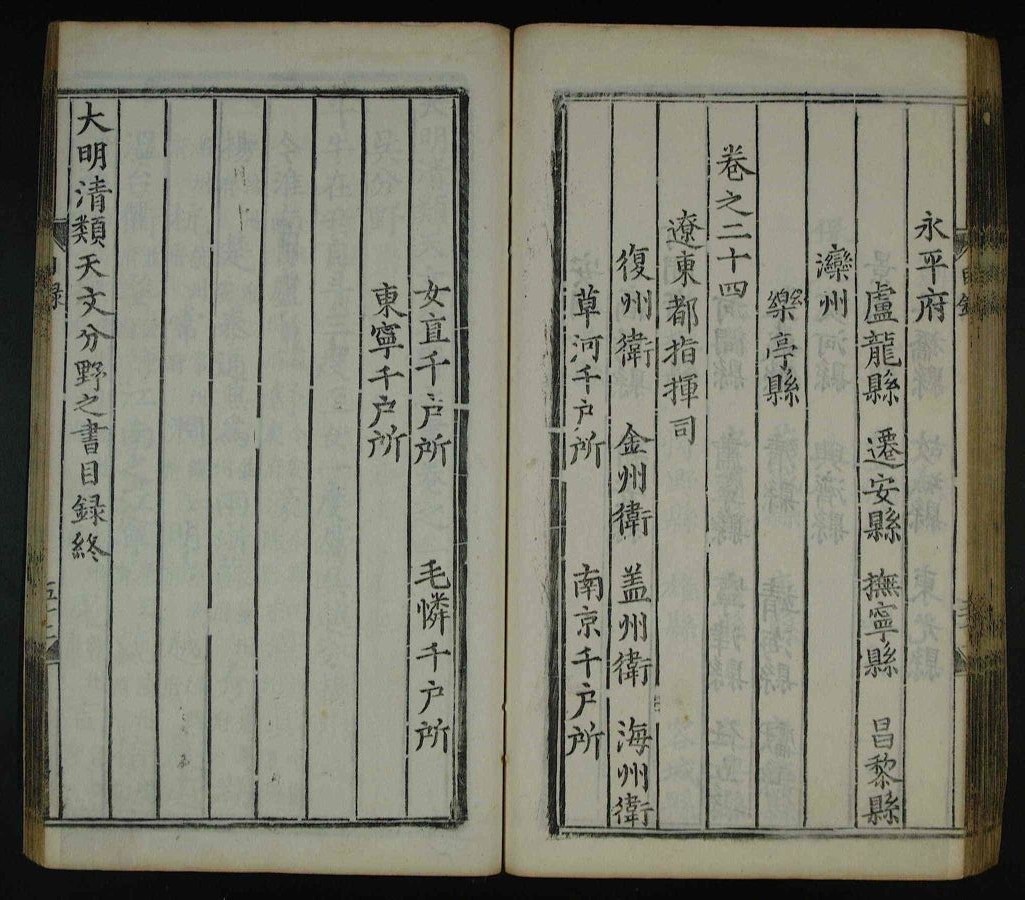 永平府
盧龍縣 遷安縣 撫寧縣 昌黎縣
灤州
樂亭縣
卷之二十四
遼東都指揮司
復州衛 金州衛 盖州衛 海州衛
草河千戶所 南京千戶所
女直千戶所 毛憐千戶所
東寧千戶所
大明清類天文分野之書目録終
目録